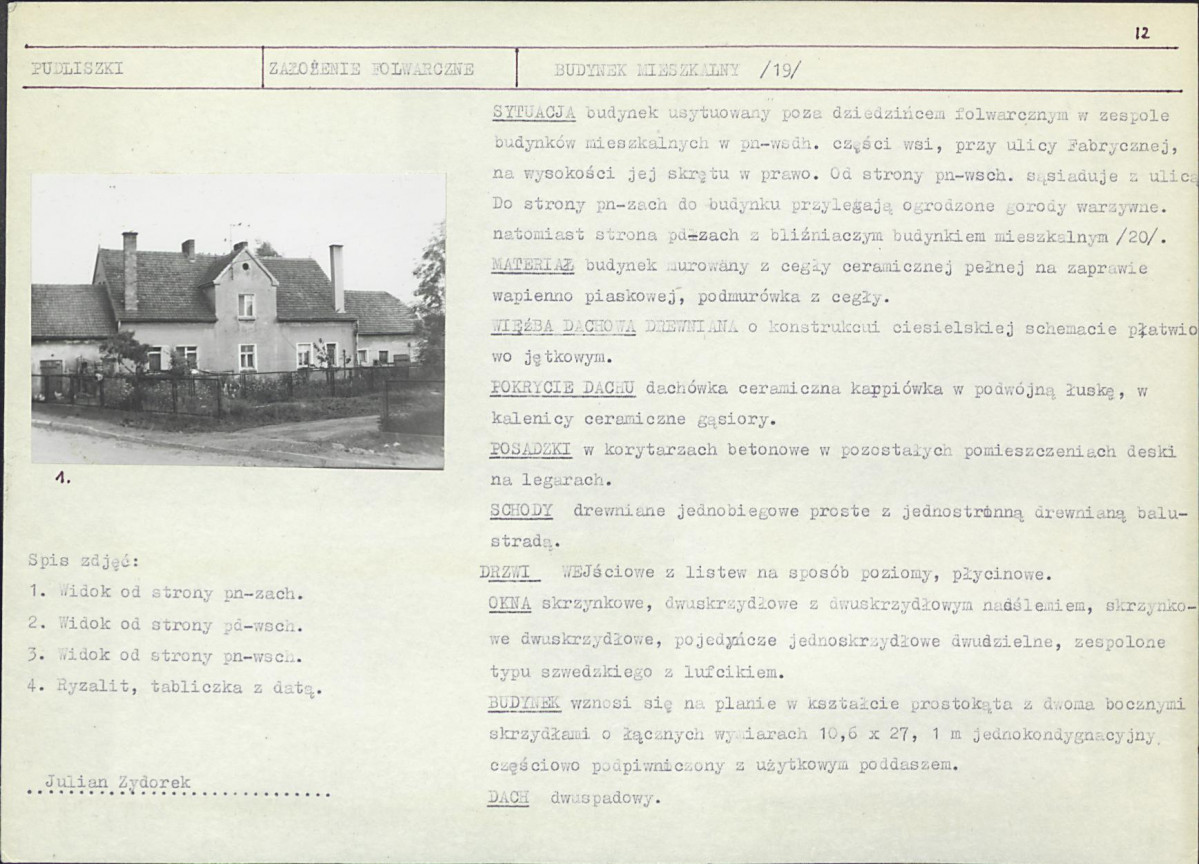 12
PUDLISZKI ZAŁOŻENIE FOLWARCZNE BUDYNEK MIESZKALNY /19/
SYTUACJA budynek usytuowany poza dziedzińcem folwarcznym w zespole
budynków mieszkalnych w pn-wsdh. części wsi, przy ulicy Fabrycznej,
na wysokości jej skrętu w prawo. Od strony pn-wsch. sąsiaduje z ulicą
Do strony pn-zach do budynku przylegają ogrodzone gorody warzywne.
natomiast strona pd-zach z bliźniaczym budynkiem mieszkalnym /20/.
MATERIAŁ budynek murowany z cegły ceramicznej pełnej na zaprawie
wapienno piaskowej, podmurówka z cegły.
WIĘŹBA DACHOWA DREWNIANA o konstrukcui ciesielskiej schemacie płatwio
wo jętkowym.
POKRYCIE DACHU dachówka ceramiczna karpiówka w podwójną łuskę, w
kalenicy ceramiczne gąsiory.
POSADZKI w korytarzach betonowe w pozostałych pomieszczeniach deski
na legarach.
SCHODY drewniane jednobiegowe proste z jednostronną drewnianą balu-
stradą.
DRZWI WEJściowe z listew na sposób poziomy, płycinowe.
OKNA skrzynkowe, dwuskrzydłowe z dwuskrzydłowym nadślemiem, skrzynko-
we dwuskrzydłowe, pojedyńcze jednoskrzydłowe dwudzielne, zespolone
typu szwedzkiego z lufcikiem.
BUDYNEK wznosi się na planie w kształcie prostokąta z dwoma bocznymi
skrzydłami o łącznych wymiarach 10,6 x 27, 1 m jednokondygnacyjny,
częściowo podpiwniczony z użytkowym poddaszem.
DACH dwuspadowy.
1.
Spis zdjęć:
1. Widok od strony pn-zach.
2. Widok od strony pd-wsch.
3. Widok od strony pn-wsch.
4. Ryzalit, tabliczka z datą.
Julian Zydorek